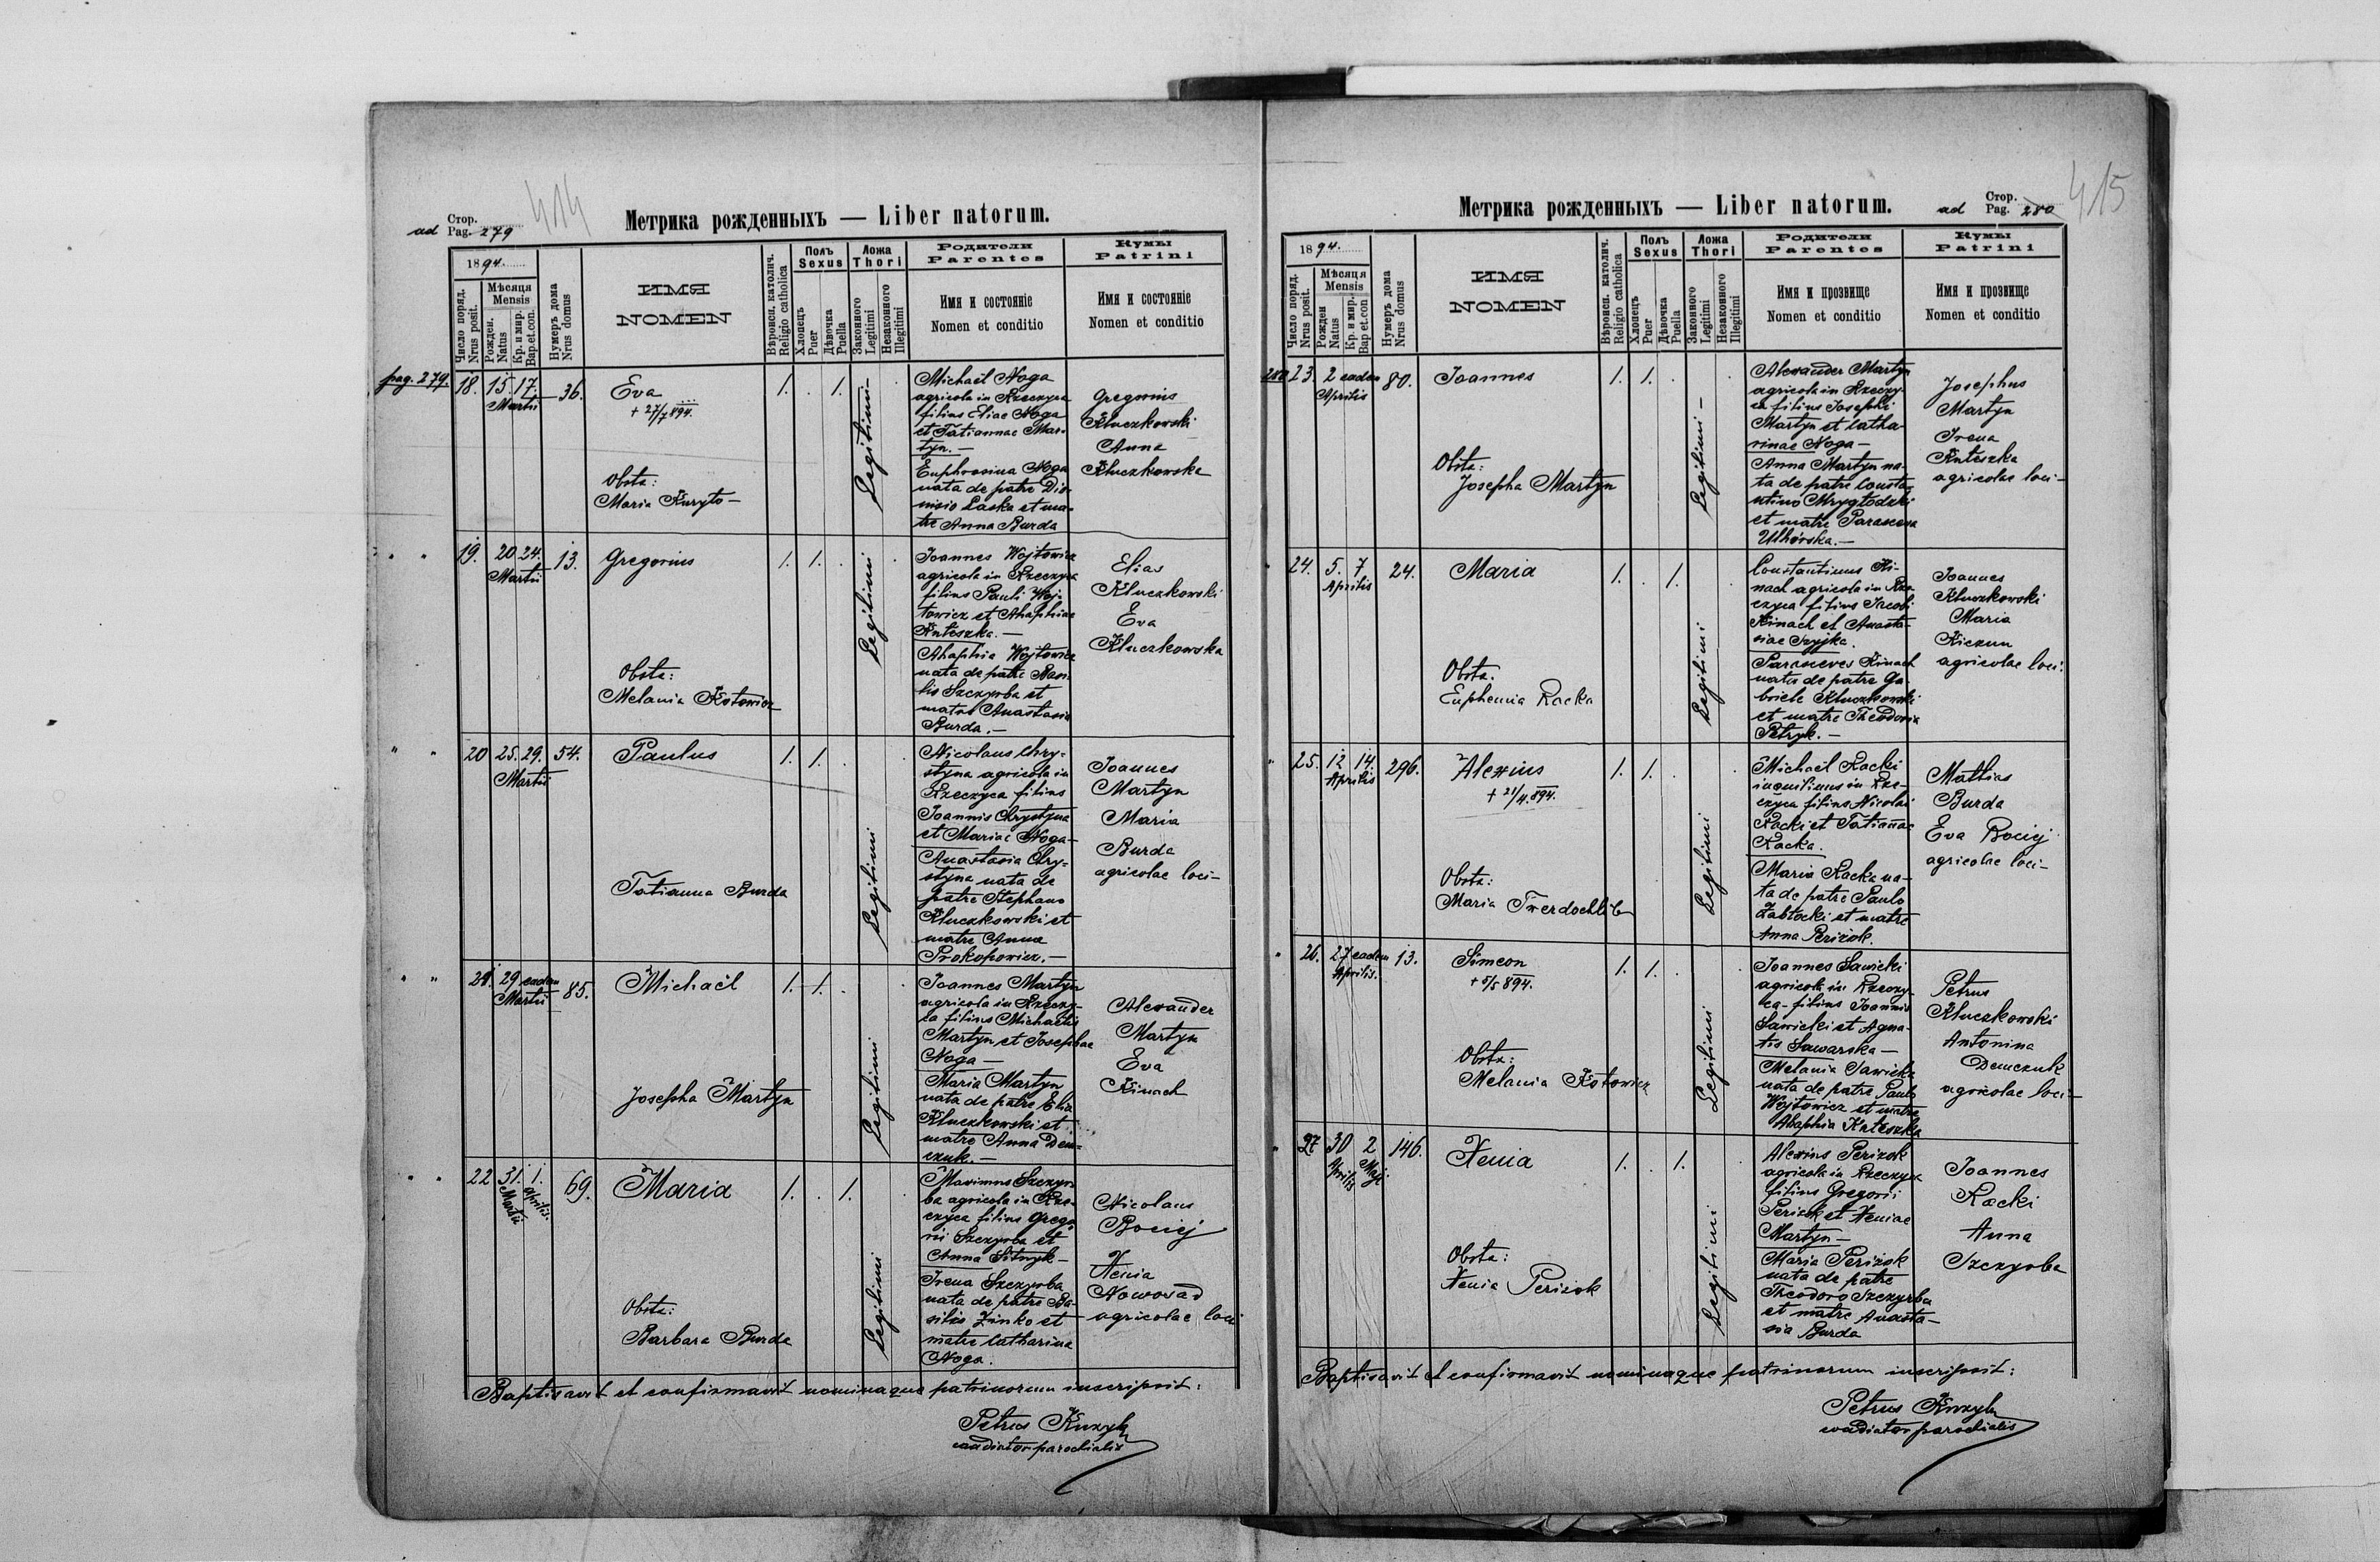 ad Стор. Pag. 279
414
Метрика рожденныхъ — Liber natorum.
1894.
Число поряд. Nrus posit.
Мѣсяця Mensis
Рожден. Natus
Кр. и мир. Bap. et. con.
Нумеръ дома Nrus domus
ИМЯ
NOMEN
Вѣроисп. католич. Religio catholica
Полъ Sexus
Хлопецъ Puer
Дѣвочка Puella
Ложа Thori
Законного Legitimi
Незаконного Illegitimi
Родители Parentes
Имя и состояніе
Nomen et conditio
Кумы Patrini
Имя и состояніе
Nomen et conditio
pag. 279. 18. 15. 17. Martii 36.
Eva
+ 27/7 894.
Obstz:
Maria Kuryło —
1. . 1.
Legitimi
Michaël Noga
agricola in Rzeczyca
filius Eliae Noga
et Tatiannae Mar-
tyn. —
Euphrosina Noga
nata de patre Dio-
nisio Laska et ma-
tre Anna Burda
Gregorius
Kluczkowski
Anna
Kluczkowska
19. 20. 24. Martii 13.
Gregorius
Obstz:
Melania Kotowicz
1. 1. .
Legitimi
Joannes Wojtowicz
agricola in Rzeczyca
filius Pauli Woj-
towicz et Ahaphiae
Knteszka. —
Ahaphia Wojtowicz
nata de patre Basi-
lio Szczyrba et
matre Anastasia
Burda. —
Elias
Kluczkowski
Eva
Kluczkowska
20 25. 29. Martii 54.
Paulus
Tatianna Burda
1. 1. .
Legitimi
Nicolaus Chry-
styna agricola in
Rzeczyca filius
Joannis Chrystyna
et Mariae Noga —
Anastasia Chry-
styna nata de
patre Stephano
Kluczkowski et
matre Anna
Prokopowicz. —
Joannes
Martyn
Maria
Burda
agricolae loci —
21. 29 eadem Martii 85.
Michaël
Josepha Martyn
1. 1. .
Legitimi
Joannes Martyn
agricola in Rzeczy-
ca filius Michaelis
Martyn et Josephae
Noga —
Maria Martyn
nata de patre Elia
Kluczkowski et
matre Anna Dem-
czuk. —
Alexander
Martyn
Eva
Kinach
22 31. Martii 1. Aprilis. 69.
Maria
Obstz:
Barbara Burda
1. . 1.
Legitimi
Maximus Szczyr-
ba agricola in Rze-
czyca filius Grego-
rii Szczyrba et
Anna Sitnyk —
Irena Szczyrba
nata de patre Ba-
silio Zinko et
matre Catharina
Noga.
Nicolaus
Bociej
Xenia
Nowosad
agricolae loci
Baptisavit et confirmavit nominaque patrinorum inscripsit:
Petrus Kuzyk
coadiutor parochialis
Метрика рожденныхъ — Liber natorum.
ad Стор. Pag. 280
415
1894.
Число поряд. Nrus posit.
Мѣсяця Mensis
Рожден Natus
Кр. и мир. Bap et.con
Нумеръ дома Nrus domus
ИМЯ
NOMEN
Вѣроисп. католич. Religio catholica
Полъ Sexus
Хлопецъ Puer
Дѣвочка Puella
Ложа Thori
Законного Legitimi
Незаконного Illegitimi
Родители Parentes
Имя и прозвище
Nomen et conditio
Кумы Patrini
Имя и прозвище
Nomen et conditio
280 23. 2 eadem Aprilis 80.
Joannes
Obstz:
Josepha Martyn
1. 1. .
Legitimi —
Alexander Martyn
agricola in Rzeczy-
ca filius Josephi
Martyn et Catha-
rinae Noga —
Anna Martyn na-
ta de patre Consta-
ntino Mrygłodzki
et matre Parascena
Uhhorska. —
Josephus
Martyn
Irena
Knteszka
agricolae loci —
24. 5. 7 Aprilis 24.
Maria
Obstz.
Euphemia Racka
1. . 1.
Legitimi
Constantinus Ki-
nach agricola in Rze-
czyca filius Jacobi
Kinach et Anasta-
siae Szyjka.
Parasceves Kinach
nata de patre Ga-
briele Kluczkowski
et matre Theodosia
Petryk. —
Joannes
Kluczkowski
Maria
Kiczun
agricolae loci.
25. 12 14. Aprilis 296.
Alexius
+ 21/4. 894.
Obstz:
Maria Twerdochlib
1. 1. .
Legitimi
Michaël Racki
inquilinus in Rze-
czyca filius Nicolai
Racki et Tatiannae
Racka.
Maria Racka na-
ta de patre Paulo
Zabłocki et matre
Anna Perizok.
Mattias
Burda
Eva Bociej
agricolae loci —
26. 27 eadem Aprilis. 13.
Simeon
+ 5/5 894.
Obstz:
Melania Kotowicz
1. 1. .
Legitimi
Joannes Sawicki
agricola in Rzeczy-
ca — filius Joannis
Sawicki et Agna-
tis Sawarska —
Melania Sawicka
nata de patre Paulo
Wojtowicz et matre
Ahaphia Knteszka
Petrus
Kluczkowski
Antonina
Demczuk
agricolae loci —
27 30 Aprilis 2 Maji 146.
Xenia
Obstz:
Xenia Perizok
1. . 1.
Legitimi
Alexius Perizok
agricola in Rzeczyca
filius Gregorii
Perizok et Xeniae
Martyn —
Maria Perizok
nata de patre
Theodoro Szczyrba
et matre Anasta-
sia Burda
Joannes
Racki
Anna
Szczyrba
Baptisavit et confirmavit nominaque patrinorum inscripsit:
Petrus Kuzyk
coadiutor parochialis